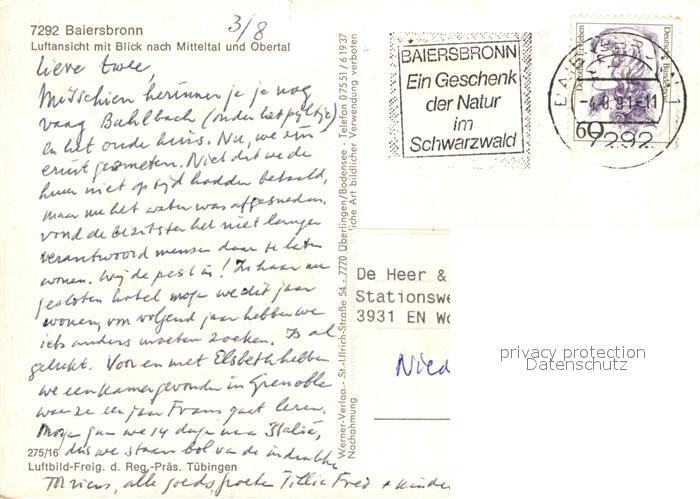 7292 Baiersbronn
Luftansicht mit Blick nach Mitteltal und Obertal
3/8
Lieve twee,
Misschien herinner je je nog
vaag Buhlbach (onder het pijltje)
en het oude huis. Nu, we zijn
eruit gesmeten. Niet dat we de
huur niet op tijd hadden betaald,
maar nu het water was afgesneden,
vond de bezitster het niet langer
verantwoord mensen daar te laten
wonen. Wij de pest in! In haar nu
gesloten hotel mogen we dit jaar
wonen, voor volgend jaar hebben we
iets anders moeten zoeken. Is al
gelukt. Voor en met Elsbeth hebben
we een kamer gevonden in Grenoble
waar ze een jaar Frans gaat leren.
Morgen gaan we 14 dagen naar Italië,
dus we staan bol van de indrukken
alle goeds, groeten Tillie Fred + kinderen
275/16
Luftbild-Freig. d. Reg.-Präs. Tübingen
Werner-Verlag - St.-Ullrich-Straße 54 - 7770 Überlingen/Bodensee - Telefon 07551/61937
Nachahmung liche Art bildlicher Verwendung verboten
BAIERSBRONN
Ein Geschenk
der Natur
im
Schwarzwald
-4.8.91-11
7292
60
Deutsche Bundespost
De Heer &
Stationswe
3931 EN Wo
Nied
privacy protection
Datenschutz